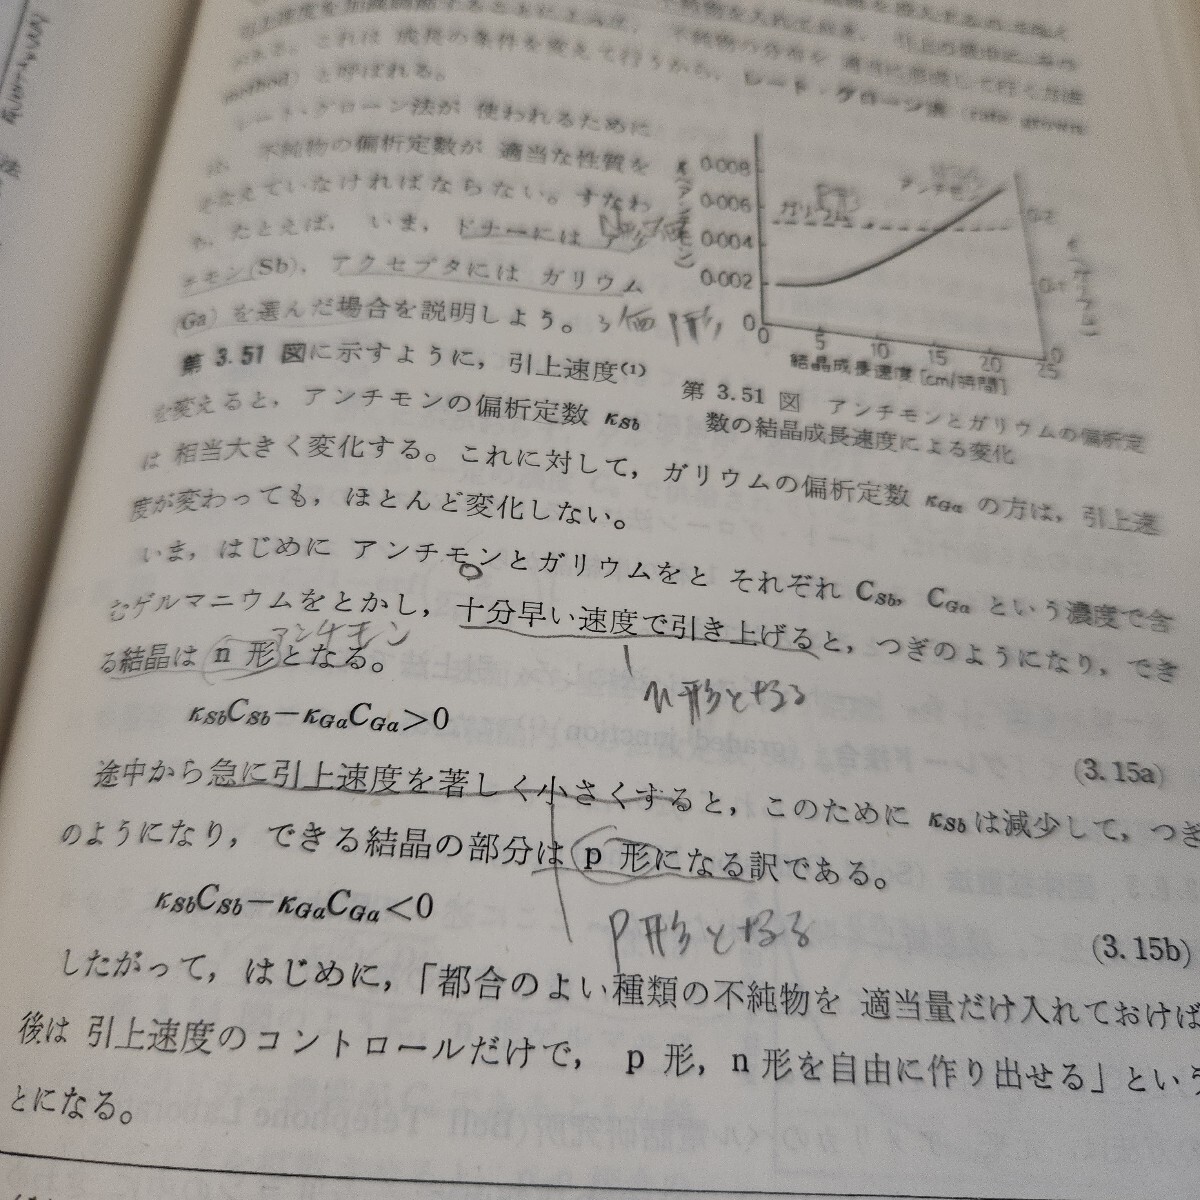 引上速度を加減制御することによって、不純物の分布を適当に
これは 成長の条件を変えて行うから, レート・グローン法 (rate grown
method) と呼ばれる。
レート・グローン法が 使われるために
は, 不純物の偏析定数が 適当な性質を
そなえていなければならない。すなわ
ち, たとえば, いま, ドナーには アン
チモン(Sb), アクセプタには ガリウム
(Ga) を選んだ場合を説明しよう。
3価 P形
第 3.51 図に示すように, 引上速度(1)
を変えると, アンチモンの偏析定数 κSb
は 相当大きく変化する。これに対して, ガリウムの偏析定数 κGa の方は, 引上速
度が変わっても, ほとんど変化しない。
κ(アンチモン)
0.008
0.006
0.004
0.002
0
ガリウム
アンチモン
0.2
0.1
0
0 5 10 15 20 25
結晶成長速度 [cm/時間]
第 3.51 図 アンチモンとガリウムの偏析定
数の結晶成長速度による変化
いま, はじめに アンチモンとガリウムをと それぞれ CSb, CGa という濃度で含
むゲルマニウムをとかし, 十分早い速度で引き上げると, つぎのようになり, でき
アンチモン
る結晶は n 形となる。
n形となる
κSbCSb−κGaCGa>0 (3.15a)
途中から急に引上速度を著しく小さくすると, このために κSbは減少して, つぎ
のようになり, できる結晶の部分は p 形になる訳である。
κSbCSb−κGaCGa<0 (3.15b)
p形となる
したがって, はじめに, 「都合のよい種類の不純物を 適当量だけ入れておけば
後は 引上速度のコントロールだけで, p 形, n 形を自由に作り出せる」という
とになる。